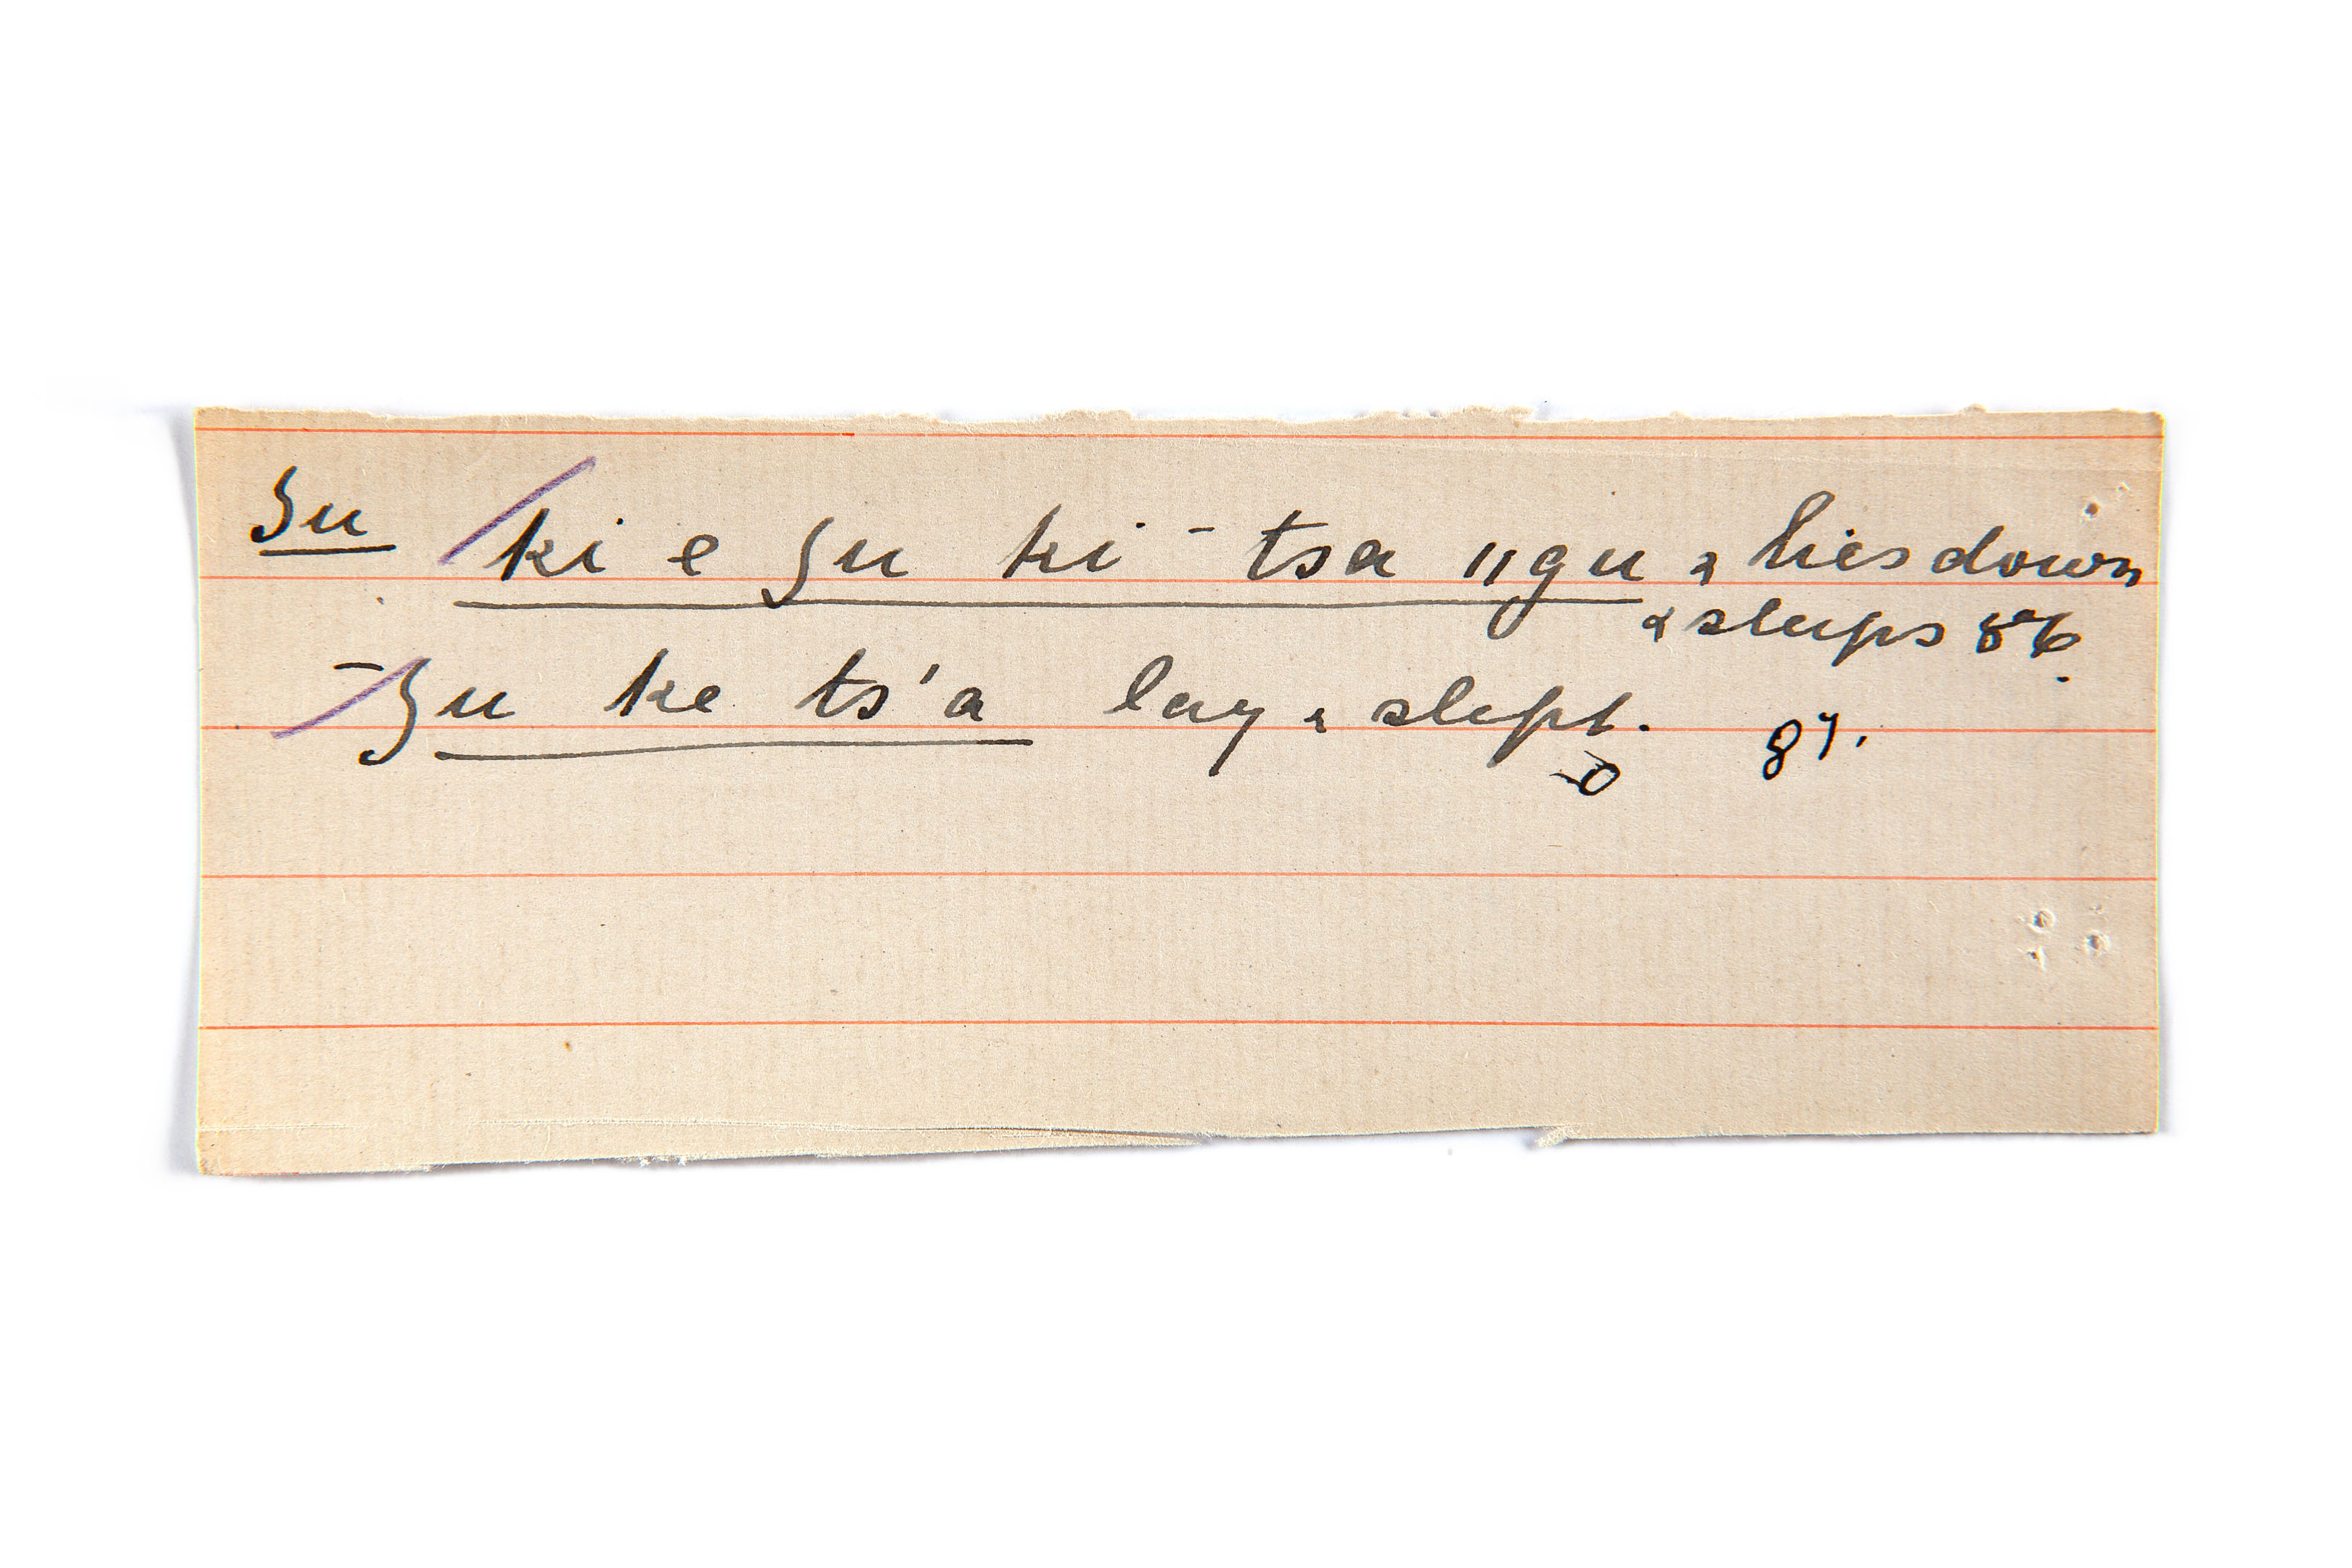 ʒu ki e ʒu ki - tsa ŋgu & lies down
& sleeps 86.
- ʒu ke ts'a lay & slept. 87.